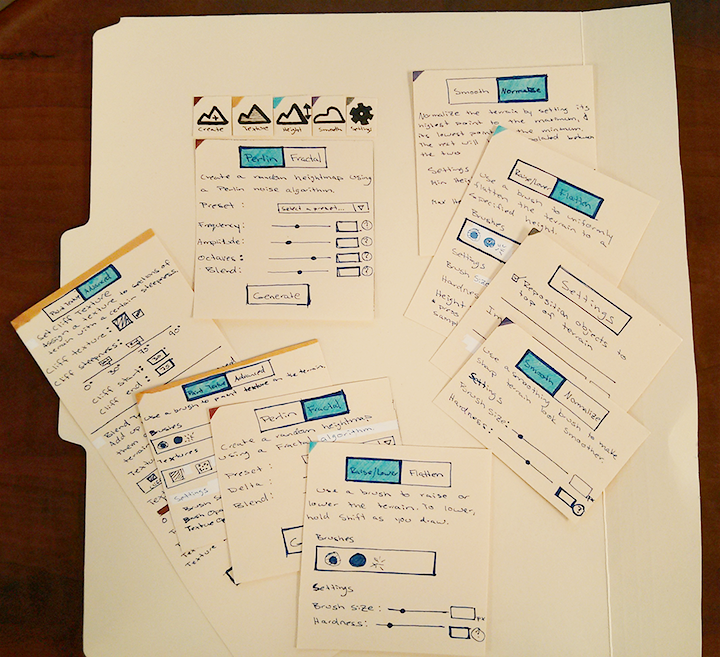 Create Texture Height Smooth Settings
Perlin Fractal
Create a random heightmap using
a Perlin noise algorithm.
Preset: Select a preset...
Frequency: ?
Amplitude: ?
Octaves: ?
Blend: ?
Generate
Smooth Normalize
Normalize the terrain by setting its
highest point to the maximum, &
its lowest point the minimum.
The rest will between
the two
Settings
Min Heig
Max He
Raise/Lower Flatten
Use a brush to uniformly
flatten the terrain to a
specified height.
Brushes
Settings
Brush Siz
Hardness
Height
Settings
Reposition objects to
top of terrain
Im
Smooth Normalize
Use a smoothing brush to make
sharp terrain look smoother
Settings
Brush size:
px
Hardness:
?
Paint Texture Advanced
Set Cliff Texture
assign a texture to sections of
terrain with a certain steepness.
Cliff texture:
Cliff steepness:
0° 30° 75° 90°
Cliff start:
Cliff end:
Blend
Add up
them
terrain
Textu
Paint Texture Advanced
Use a brush to paint texture on the terrain.
Brushes
Textures
Settings
Brush Si
Brush Opa
Texture Op
Tex
Texture
Perlin Fractal
Create a random heightmap
using a Fractal algorithm
Preset:
Delta:
Blend:
Raise/Lower Flatten
Use a brush to raise or
lower the terrain. To lower,
hold Shift as you draw.
Brushes
Settings
Brush size: px
Hardness: ?